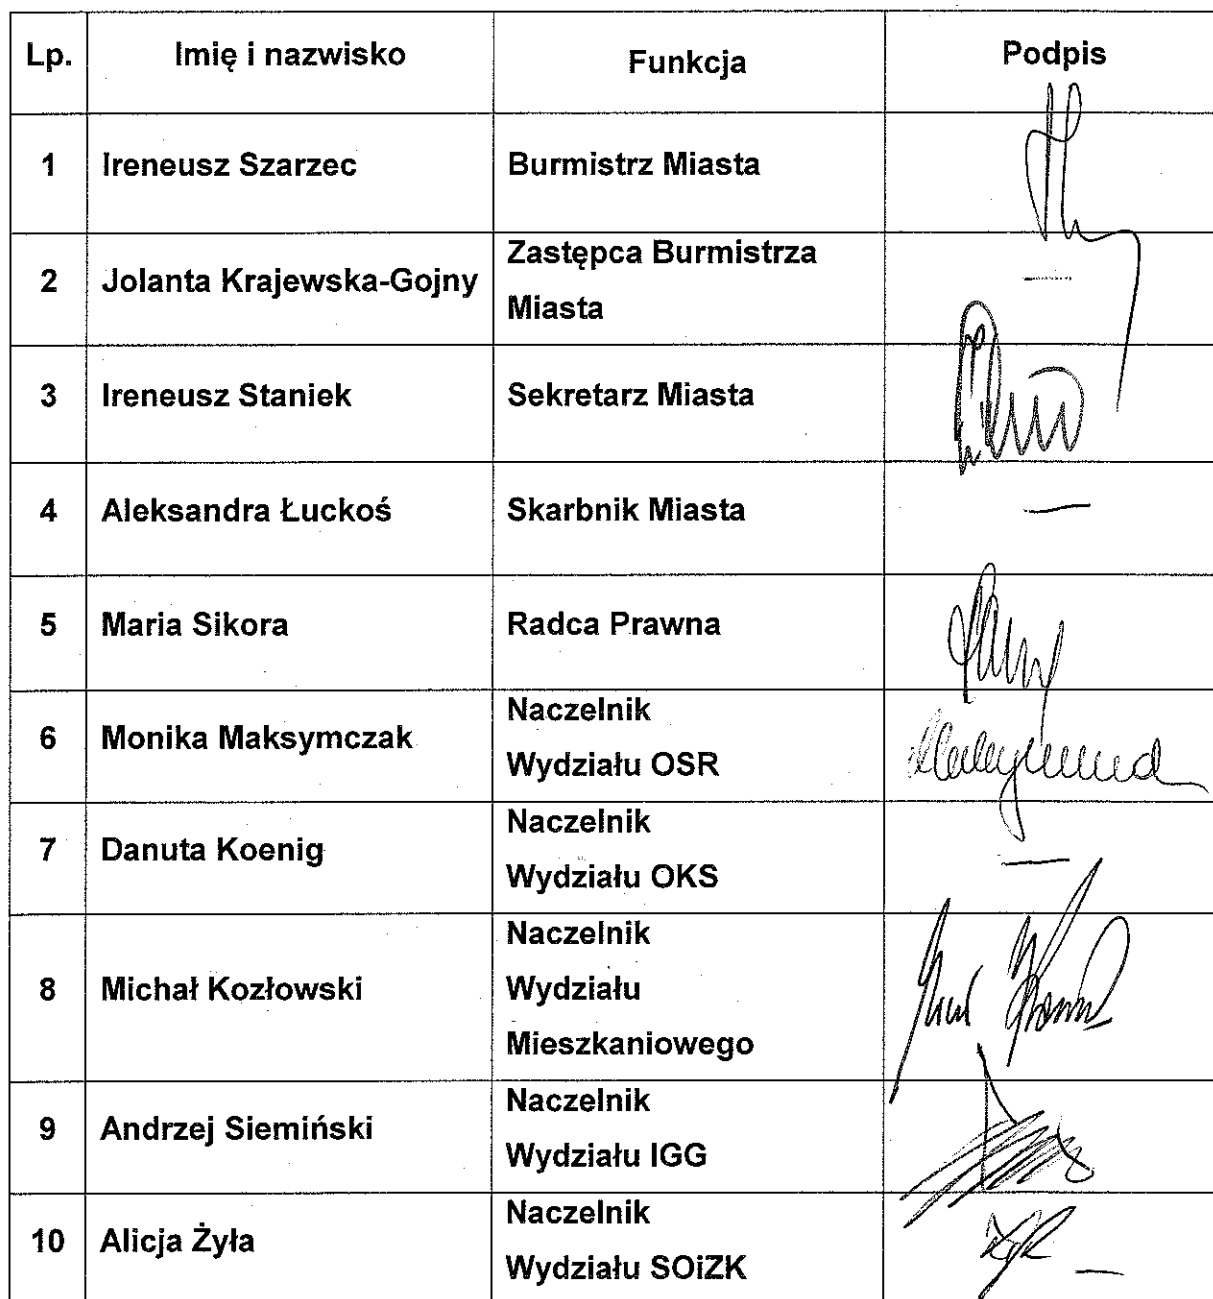 Lp. Imię i nazwisko Funkcja Podpis
1 Ireneusz Szarzec Burmistrz Miasta
2 Jolanta Krajewska-Gojny Zastępca Burmistrza
Miasta —
3 Ireneusz Staniek Sekretarz Miasta
4 Aleksandra Łuckoś Skarbnik Miasta —
5 Maria Sikora Radca Prawna
6 Monika Maksymczak Naczelnik
Wydziału OSR
7 Danuta Koenig Naczelnik
Wydziału OKS —
8 Michał Kozłowski Naczelnik
Wydziału
Mieszkaniowego
9 Andrzej Siemiński Naczelnik
Wydziału IGG
10 Alicja Żyła Naczelnik
Wydziału SOiZK —